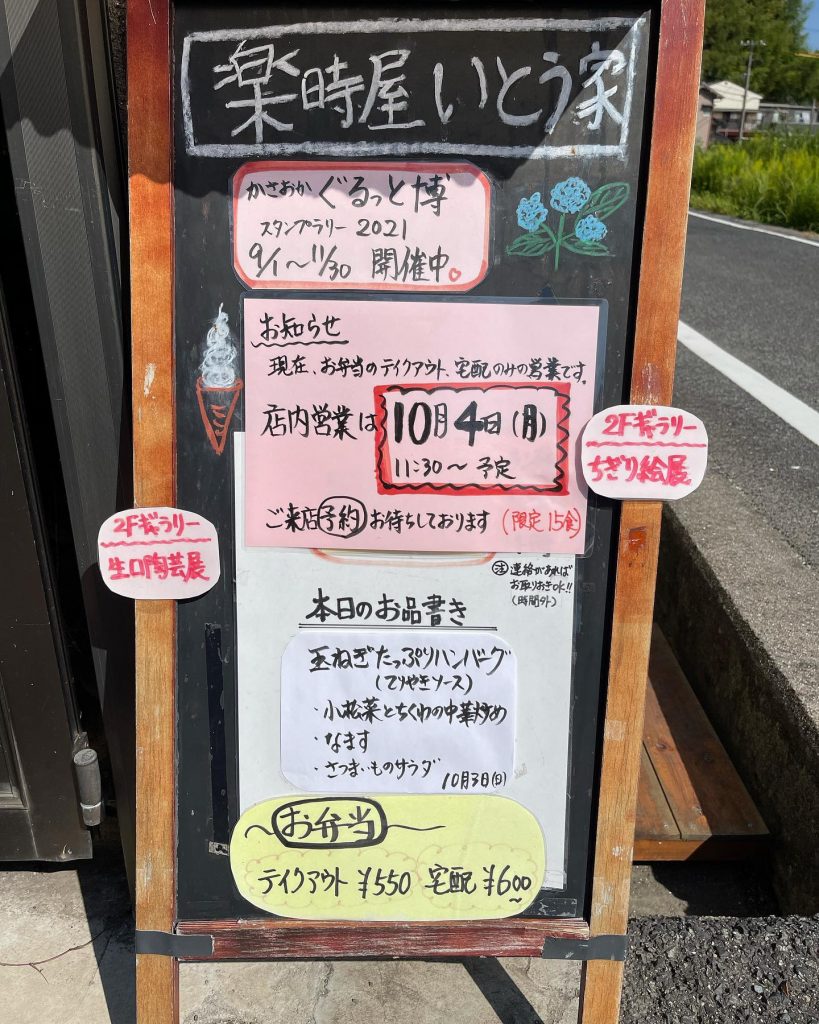 楽時屋いとう家
かさおか ぐるっと博
スタンプラリー 2021
9/1〜11/30 開催中
お知らせ
現在、お弁当のテイクアウト、宅配のみの営業です。
店内営業は 10月4日(月)
11:30〜 予定
ご来店予約お待ちしております (限定15食)
2Fギャラリー
ちぎり絵展
2Fギャラリー
生口陶芸展
注 連絡があれば
お取りおきOK!!
(時間外)
本日のお品書き
玉ねぎたっぷりハンバーグ
(てりやきソース)
・小松菜とちくわの中華炒め
・なます
・さつまいものサラダ
10月3日(日)
お弁当
テイクアウト ¥550 宅配 ¥600〜